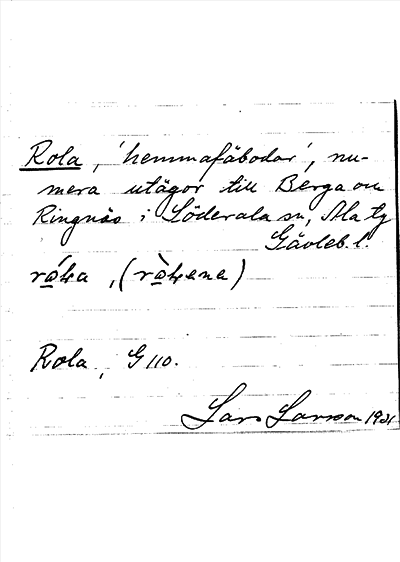 Rola, 'hemmafäbodar', nu-
mera utägor till Berga och
Ringnäs i Söderala sn, Ala tg
Gävleb. l.
Rola, G 110.
Lars Larsson 1921